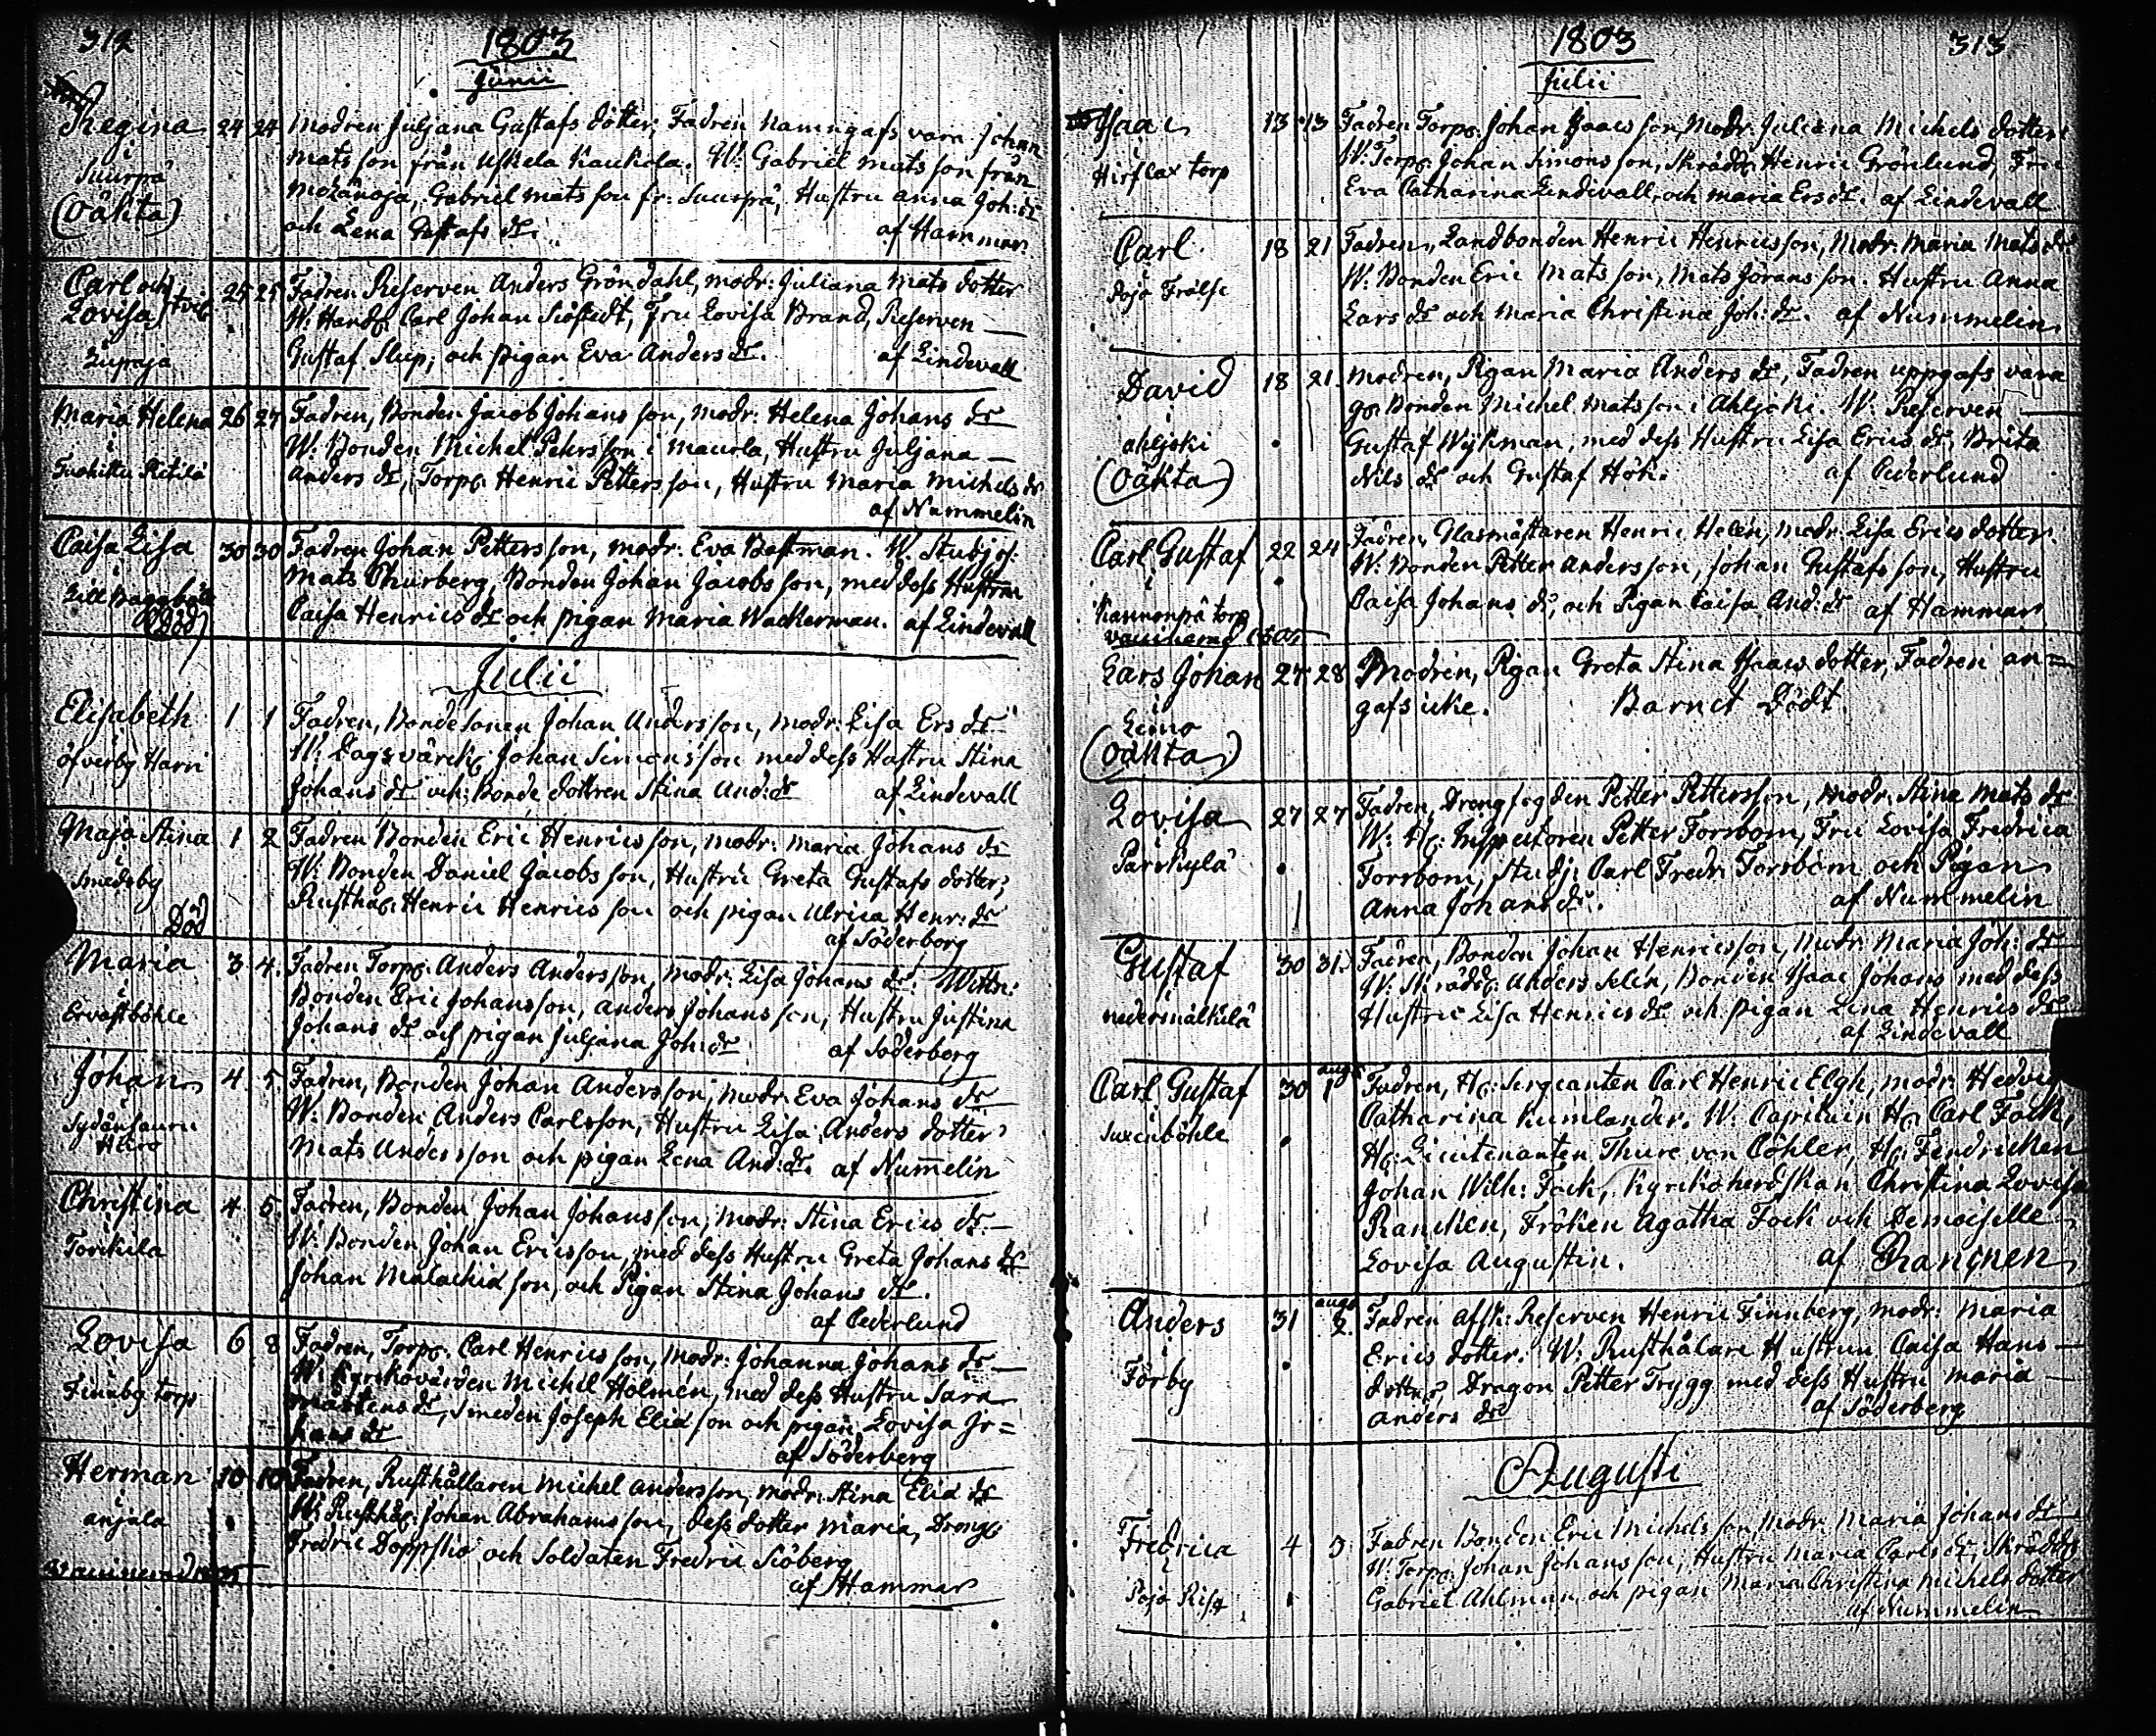 312
1803
Junii
Regina 24 24 Modren Juljana Gustafs dotter, Fadren namngafs vara Johan
i
Suurpä Mats son från Uskela Kaukola. W: Gabriel Mats son från
(Oäkta) Gabriel Mats son fr: Suurpä, Hustru Anna Joh: dr
och Lena Gustafs dr. af Hammar
Carl och
Lovisa 25 25 Fadren Reserven Anders Gröndahl, modr: Juliana Mats dotter
W: Carl Johan Siöstedt, Fru Lovisa Brand, Reserven
Gustaf Slup, och pigan Eva Anders dr. af Lindevall
Maria Helena 26 27 Fadren, Bonden Jacob Johans son, modr: Helena Johans dr
i
W: Bonden Michel Pehrs son i Maurla, Hustru Juljana
Anders dr, Torp: Henric Petters son, Hustru Maria Michels dr
af Nummelin
Caisa Lisa 30 30 Fadren Johan Petters son, modr: Eva Bostman. W.
i
Lill Baggböle Mats Thurberg, Bonden Johan Jacobs son, med dess Hustru
(Död) Caisa Henrics dr och pigan Maria Wackerman. af Lindevall
Julii
Elisabeth 1 1 Fadren, Bondesonen Johan Andersson, modr: Lisa Ers dr
i
öfverby Harri W: Johan Simons son med dess Hustru Stina
Johans dr och Bonde dottren Stina And: dr af Lindevall
Maja Stina 1 2 Fadren Bonden Eric Henrics son, modr: Maria Johans dr
i
Smedsby W: Bonden Daniel Jacobs son, Hustru Greta Gustafs dotter,
Död Rusthåll: Henric Henrics son och pigan Ulrica Henr: dr
af Söderborg
Maria 3 4 Fadren Torp: Anders Andersson, modr: Lisa Johans dr. Wittn:
i
Ervastböhle Bonden Eric Johansson, Anders Johans son, Hustru Justina
Johans dr och pigan Juljana Joh: dr af Söderborg
Johan 4 5 Fadren, Bonden Johan Andersson, modr: Eva Johans dr
W: Bonden Anders Carlsson, Hustru Lisa Anders dotter,
Mats Andersson och pigan Lena And: dr. af Num̅elin
Christina 4 5 Fadren, Bonden Johan Johans son, modr: Stina Erics dr.
Torkila W: Bonden Johan Ericsson, med dess Hustru Greta Johans dr
Johan Malachia son, och Pigan Stina Johans dr.
af Cederlund
Lovisa 6 8 Fadren, Torp: Carl Henrics son, modr: Johanna Johans dr
i
Finnby torp W: Kyrkovärden Michel Holmén, med dess Hustru Sara
Mårtens dr, Smeden Joseph Elia son och pigan Lovisa Jo=
hans dr af Söderberg
Herman 10 10 Fadren, Rusthållaren Michel Andersson, modr: Stina Elia dr
i
anjala W: Rusth: Johan Abrahams son, dess dotter Maria, Dreng:
Fredric och Soldaten Fredric Siöberg
af Hammar
1803 313
Julii
Isaac 13 13 Fadren Torp: Johan Isaacs son, Modr: Juliana Michels dotter
i
torp W: Torp: Johan Simons son, Skrädd: Henric Grönlund, Fru
Eva Catharina Lindivall, och Maria Ers dr. af Lindevall
Carl 18 21 Fadren, Landbonden Henric Henricsson, Modr: Maria Mats dr
i
Pojo Frälse W: Bonden Eric Mats son, Mats Jörans son. Hustru Anna
Lars dr och Maria Christina Joh: dr. af Nummelin
David 18 21 Modren, Pigan Maria Anders dr, Fadren uppgafs vara
i
ahljoki Bonden Michel Matsson i Ahljoki. W: Reserven
Gustaf Wijkman, med dess Hustru Lisa Erics dr. Brita
(Oäkta) Nils dr och Gustaf Höh: af Cederlund
Carl Gustaf 22 24 Fadren, Glasmästaren Henric Helén, modr: Lisa Erics dotter
i
W: Bonden Petter Andersson, Johan Gustafs son, Hustru
Kannonpä torp Caisa Johans dr, och Pigan Caisa And: dr af Hammar
Lars Johan 27 28 Modren, Pigan Greta Stina Isaacs dotter, Fadren an=
i
Leino gafs icke. Barnet Dödt.
(Oäkta)
Lovisa 27 27 Fadren, Drengfogden Petter Pettersson, modr: Stina Mats dr
i
Parskylä W: H: Inspectoren Petter Forsbom, Fru Lovisa Fredrica
Forsbom, Studj: Carl Fredr: Forsbom och Pigan
Anna Johans dr. af Nummelin
Gustaf 30 31 Fadren, Bonden Johan Henricsson, Modr: Maria Joh: dr
i
nedermälkilä W: Skrädd: Anders Selin, Bonden Isaac Johans med dess
Hustru Lisa Henrics dr och pigan Lena Henrics dr
af Lindevall
Carl Gustaf 30 aug: 1 Fadren, H: Sergeanten Carl Henric Elgh, modr: Hedvig
i
Suxenböhle Catharina Kumlander. W: Capitain H: Carl Fock,
H: Lieutenanten Thure von Cöhler, H: Fendricken
Johan Wilh: Fock, Kyrkoherdskan Christina Lovisa
Rancken, Fröken Agatha Fock och Demoiselle
Lovisa Augustin. af
Anders 31 augs 2 Fadren Afsk: Reserven Henric Finnberg, modr: Maria
i
Förby Erics dotter. W: Rusthålare Hustrun Caisa Hans
dotter, Dragon Petter Trygg med dess Hustru Maria
Anders dr af Söderberg
Augusti
Fredrica 4 5 Fadren Bonden Eric Michels son, Modr: Maria Johans dr
i
W: Torp: Johan Johans son, Hustru Maria Carls dr, Skrädd:
Pojo Gabriel Ahlman, och pigan Maria Christina Michels dotter
af Nummelin